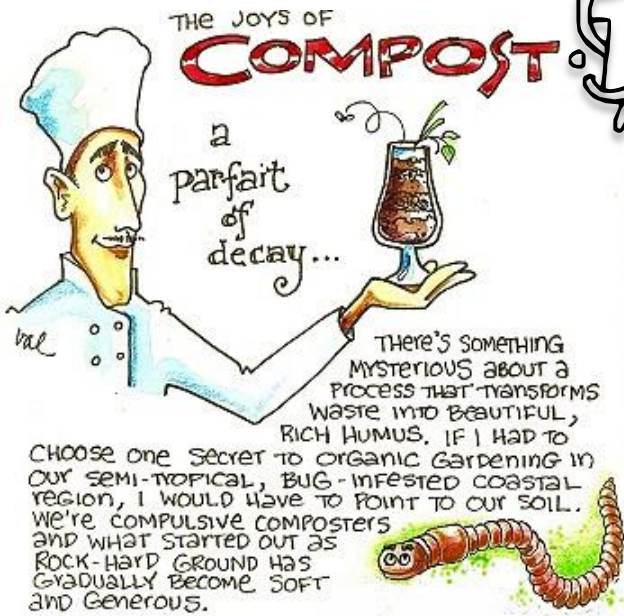 THE JOYS OF
COMPOST
a
parfait
of
decay...
val
THERE'S SOMETHING
MYSTERIOUS ABOUT A
PROCESS THAT TRANSFORMS
WASTE INTO BEAUTIFUL,
RICH HUMUS. IF I HAD TO
CHOOSE ONE SECRET TO ORGANIC GARDENING IN
OUR SEMI-TROPICAL, BUG-INFESTED COASTAL
REGION, I WOULD HAVE TO POINT TO OUR SOIL.
WE'RE COMPULSIVE COMPOSTERS
AND WHAT STARTED OUT AS
ROCK-HARD GROUND HAS
GRADUALLY BECOME SOFT
AND GENEROUS.